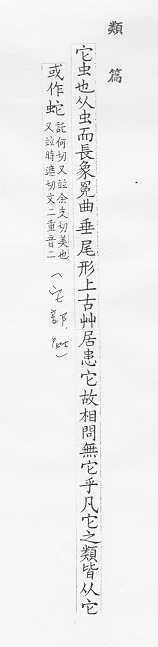 類篇
它虫也从虫而長象冤曲垂尾形上古艸居患它故相問無它乎凡它之類皆从它
或作蛇託何切又竝余支切美也又竝時遮切文二重音二(它部